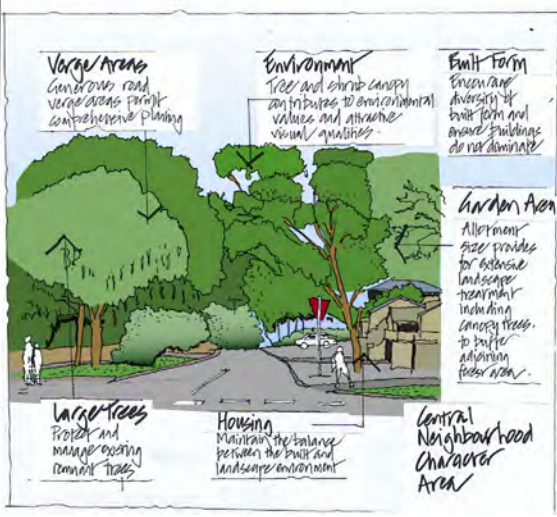 Verge Areas
Generous road
verge areas permit
comprehensive planting
Environment
Tree and shrub canopy
contributes to environmental
values and attractive
visual qualities.
Built Form
Encourage
diversity of
built form and
ensure buildings
do not dominate
Garden Area
Allotment
size provides
for extensive
landscape
treatment
including
canopy trees.
to buffer
adjoining
forest area.
Large Trees
Protect and
manage existing
remnant trees
Housing
Maintain the balance
between the built and
landscape environment
Central
Neighbourhood
Character
Area